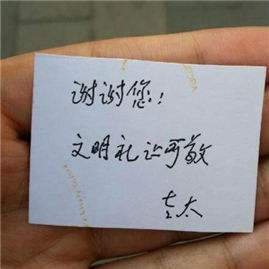 谢谢您！
文明礼让可敬
老太